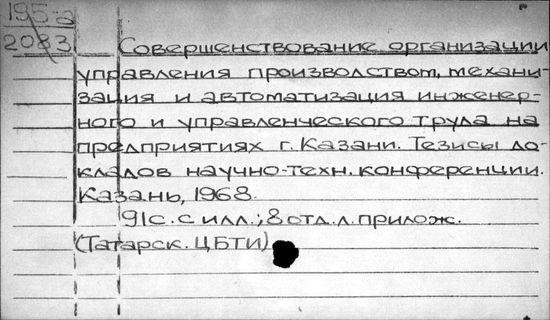 195
2083
Совершенствование организации
управления производством, механи-
зация и автоматизация инженер-
ного и управленческого труда на
предприятиях г. Казани. Тезисы до-
кладов научно-техн. конференции.
Казань, 1968.
91 с. с илл.; 8 отд. л. прилож.
(Татарск. ЦБТИ)